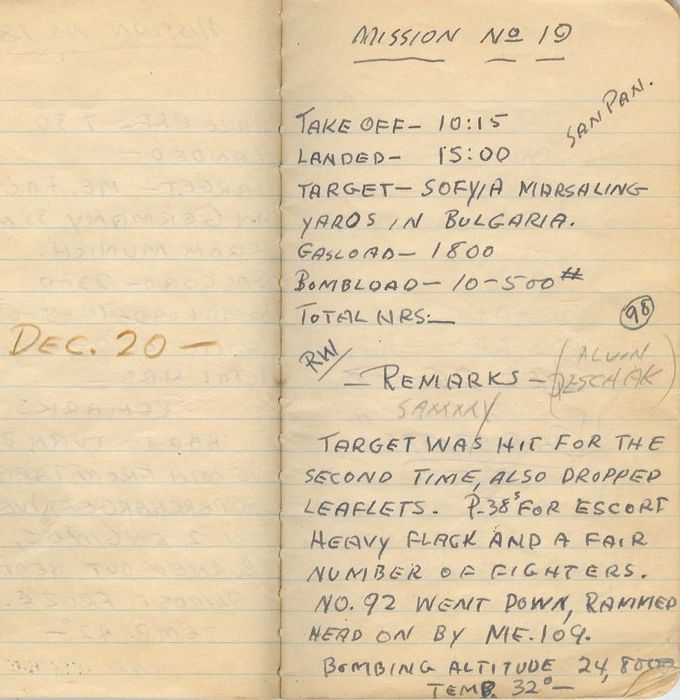 MISSION No 19
SAN PAN.
TAKE OFF- 10:15
LANDED- 15:00
TARGET- SOFYIA MARSALING
YARDS IN BULGARIA.
GASLOAD- 1800
BOMBLOAD- 10-500#
TOTAL HRS:-
98
DEC. 20-
RW
- REMARKS -
(ALVIN
PESCHAK)
SAXXXXY
TARGET WAS HIT FOR THE
SECOND TIME, ALSO DROPPED
LEAFLETS. P-38s FOR ESCORT
HEAVY FLACK AND A FAIR
NUMBER OF FIGHTERS.
NO. 92 WENT DOWN, RAMMED
HEAD ON BY ME.109.
BOMBING ALTITUDE 24,800
TEMP. 32°-